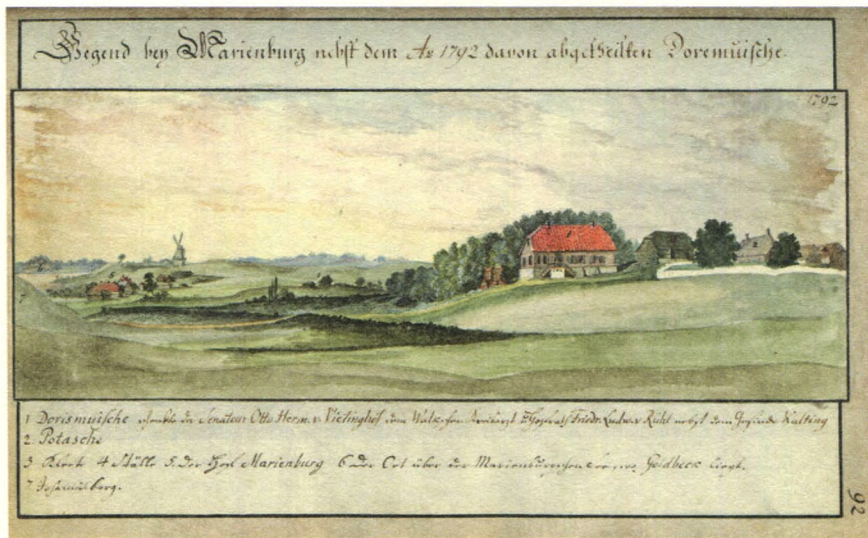 Gegend bey Marienburg nebst dem Ao 1792 davon abgetheilten Doremuische.
1792
1 Dorismuische schenkte der Senateur Otto Herm. v. Vietinghof dem Friedr. Ludw. v. Rühl nebst dem Gesinde Kalting
2. Potasche
3 Kleete 4 Ställe 5. Der Hof Marienburg 6 der Ort über der Marienburgschen wo Goldbeck liegt.
7
92